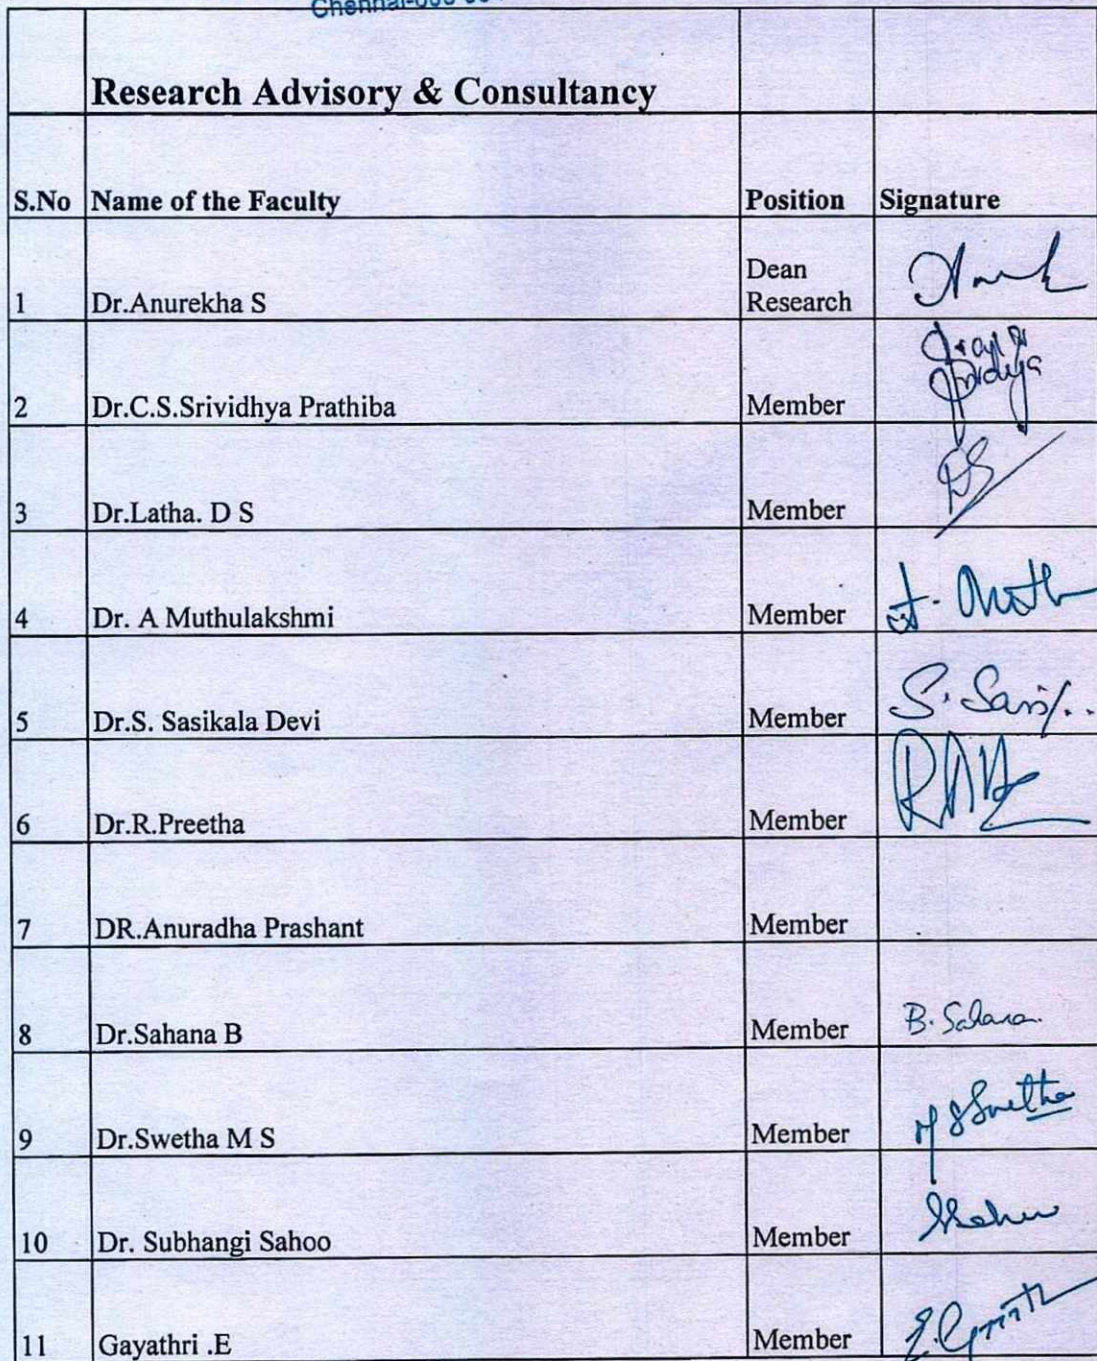 Research Advisory & Consultancy
S.No Name of the Faculty Position Signature
1 Dr.Anurekha S Dean Research
2 Dr.C.S.Srividhya Prathiba Member
3 Dr.Latha. D S Member DS
4 Dr. A Muthulakshmi Member
5 Dr.S. Sasikala Devi Member
6 Dr.R.Preetha Member
7 DR.Anuradha Prashant Member
8 Dr.Sahana B Member B. Sahana
9 Dr.Swetha M S Member M S Swetha
10 Dr. Subhangi Sahoo Member
11 Gayathri .E Member